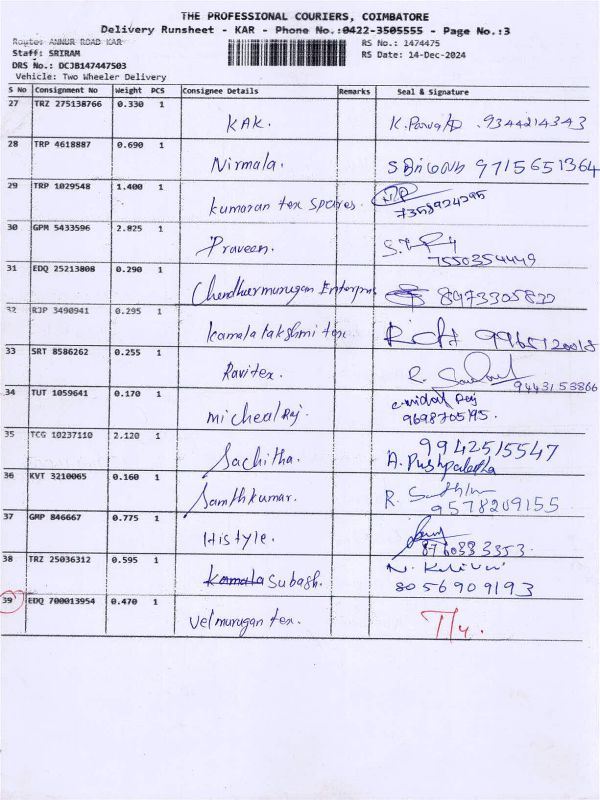 THE PROFESSIONAL COURIERS, COIMBATORE
Delivery Runsheet - KAR - Phone No.:0422-3505555 - Page No.:3
Route: ANNUR ROAD KAR RS No.: 1474475
Staff: SRIRAM RS Date: 14-Dec-2024
DRS No.: DCJB147447503
Vehicle: Two Wheeler Delivery
S No Consignment No Weight PCS Consignee Details Remarks Seal & Signature
27 TRZ 275138766 0.330 1
KAK. 9344214343
28 TRP 4618887 0.690 1
Nirmala. 9715651364
29 TRP 1029548 1.400 1
kumaran tex spares.
30 GPM 5433596 2.825 1
Praveen.
7550354449
31 EDQ 25213808 0.290 1
32 RJP 3490941 0.295 1
kamala lakshmi tex
33 SRT 8586262 0.255 1
Ravitex.
9443153866
34 TUT 1059641 0.170 1
michealRaj.
9698705195.
35 TCG 10237110 2.120 1
9942515547
Sachitha. A. Pushpalatha
36 KVT 3210065 0.160 1
Santhkumar.
9578209155
37 GMP 846667 0.775 1
Histyle.
38 TRZ 25036312 0.595 1
Kamala Subash.
8056909193
39 EDQ 700013954 0.470 1
velmurugan tex.